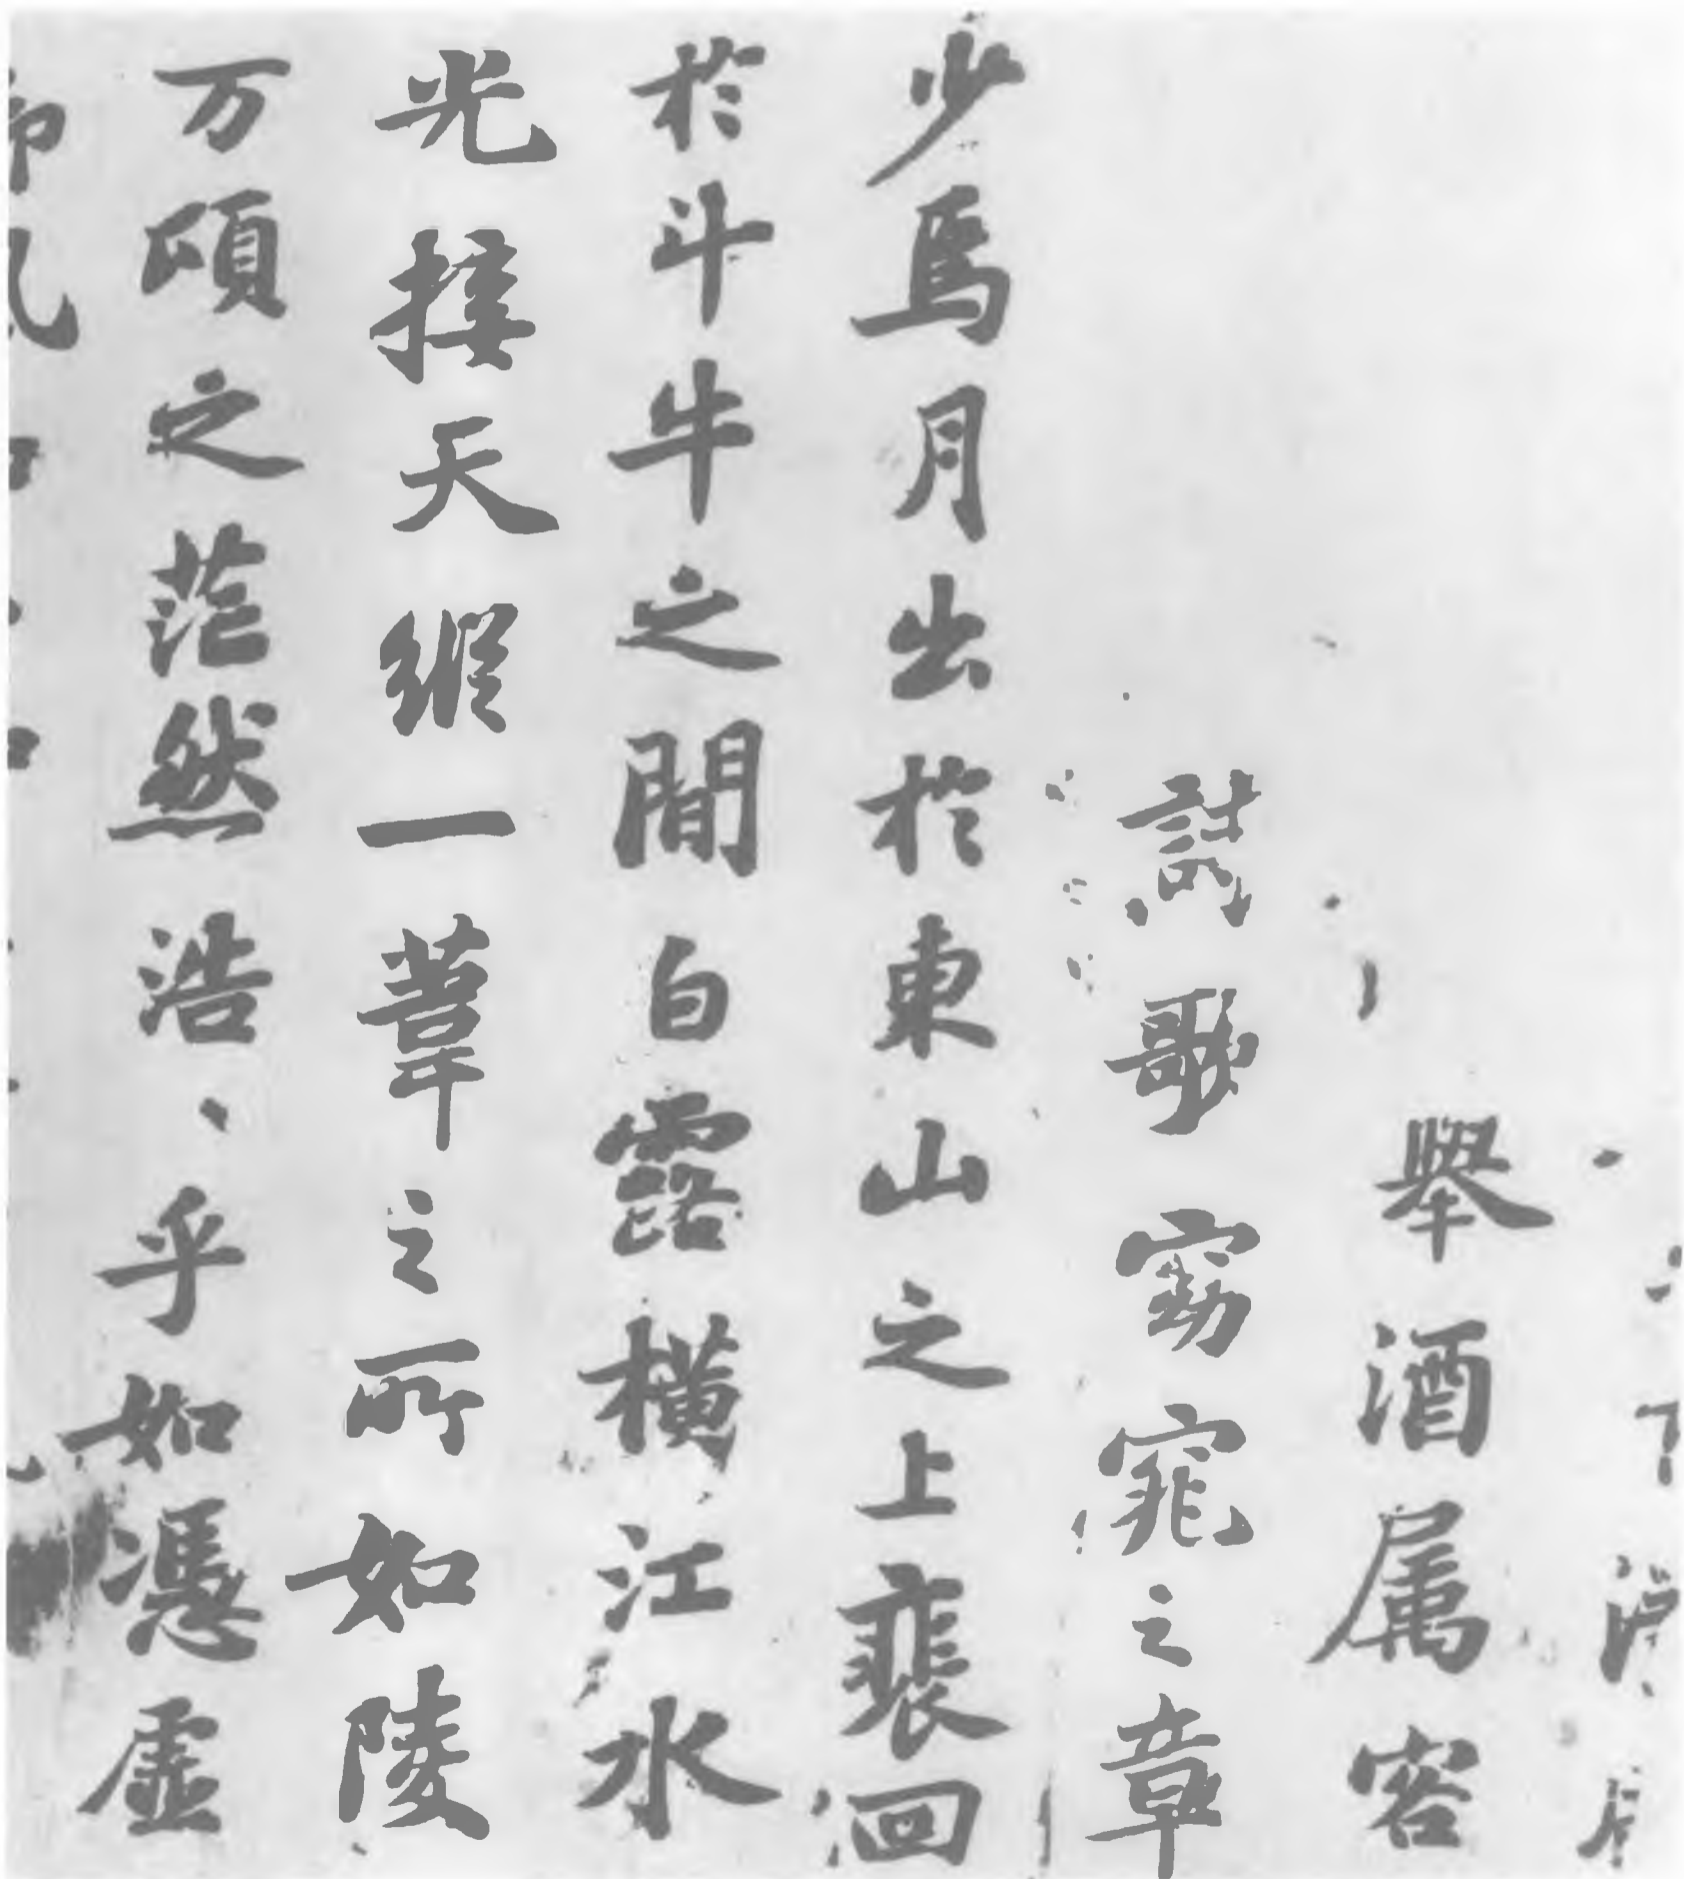 舉酒属客
詩歌窈窕之章
少焉月出於東山之上裴回
於斗牛之間白露横江水
光接天縱一葦之所如陵
万頃之茫然浩、乎如憑虛